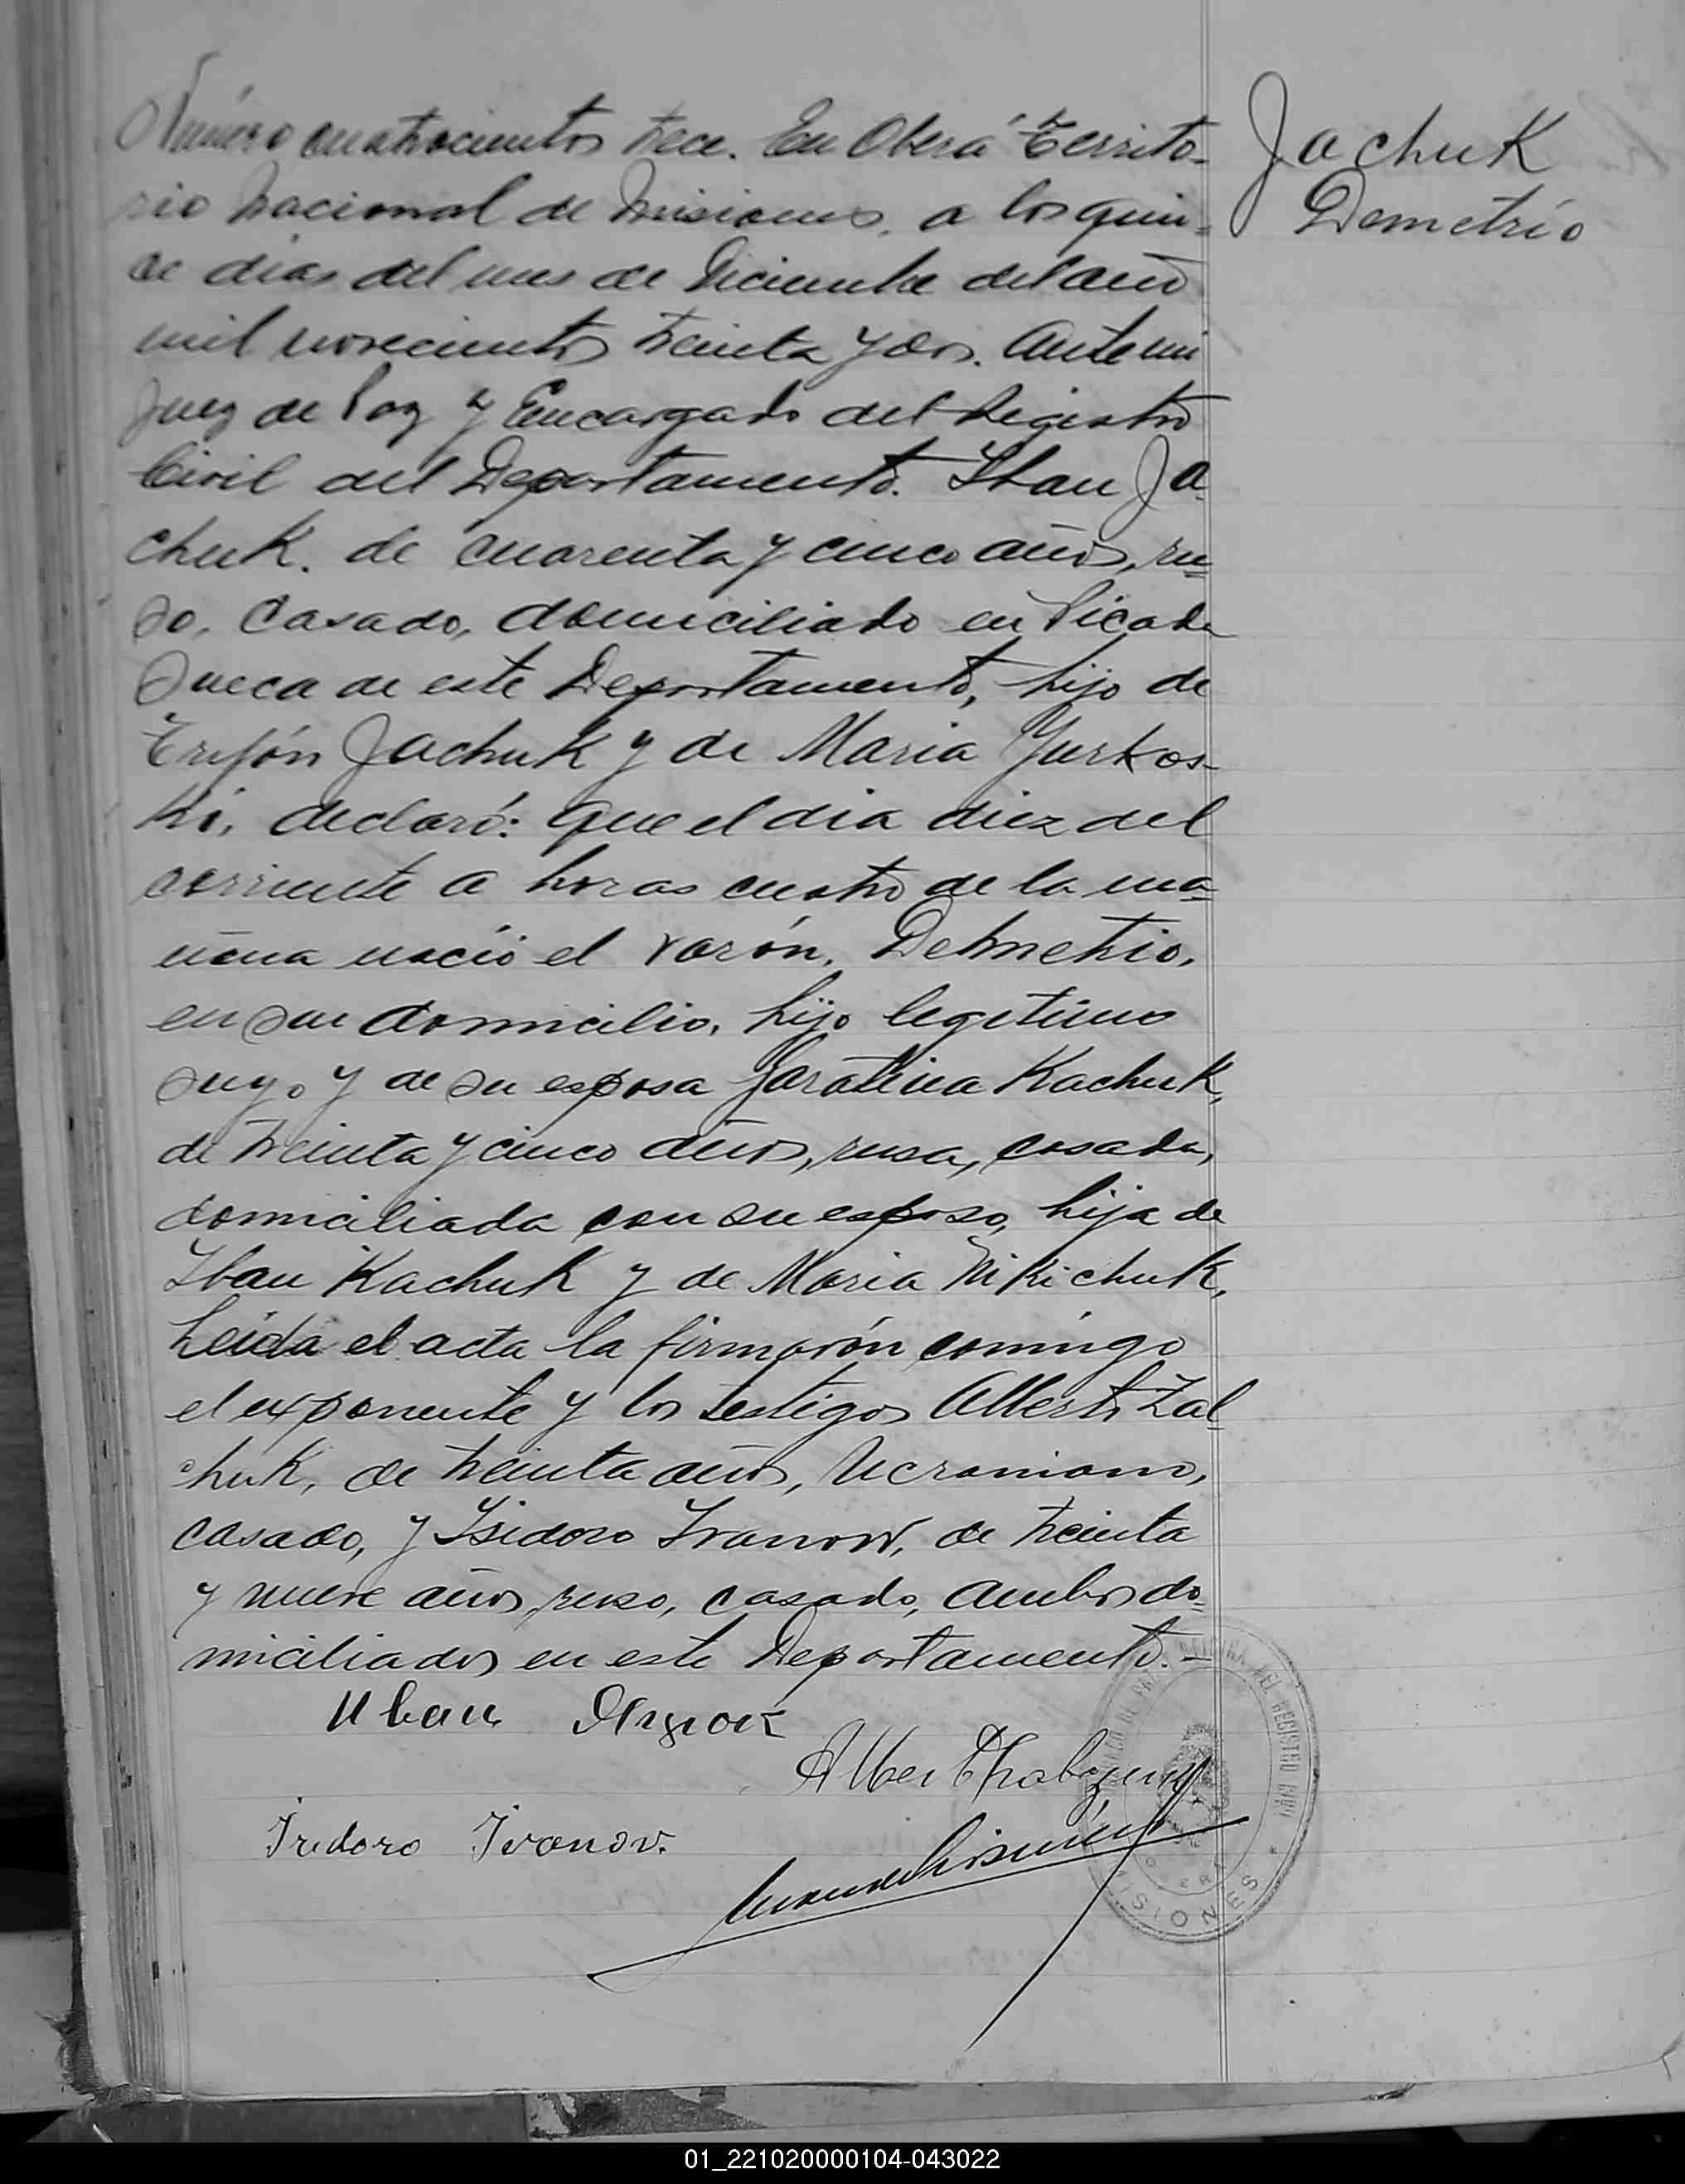 Número cuatrocientos trece. En Oberá Territo-
rio Nacional de Misiones, a los quin-
ce dias del mes de Diciembre del año
mil novecientos treinta y dos. Ante mi
Juez de Paz y Encargado del Registro
Civil del Departamento. Iban Ja-
chuk. de cuarenta y cinco años, ru-
so, casado, domiciliado en Picada
Sueca de este Departamento, hijo de
Trifón Jachuk y de Maria Yurkos-
ki, declaró: que el dia diez del
corriente a horas cuatro de la ma-
ñana nació el varón, Demetrio,
en su domicilio, hijo legitimo
suyo y de su esposa Kachuk,
de treinta y cinco años, rusa, casada,
domiciliada con su esposo, hija de
Iban Kachuk y de Maria Nikichuk.
Leida el acta la firmarón comigo
el exponente y los testigos Alberto Zal-
chuk, de treinta años, Ucraniano,
casado, y Isidoro Ivanow, de treinta
y nueve años, ruso, casado, ambos do-
miciliados en este Departamento. -
Jachuk
Demetrio
Isidoro Ivanov.
OFICINA DEL REGISTRO CIVIL
MISIONES
01_221020000104-043022